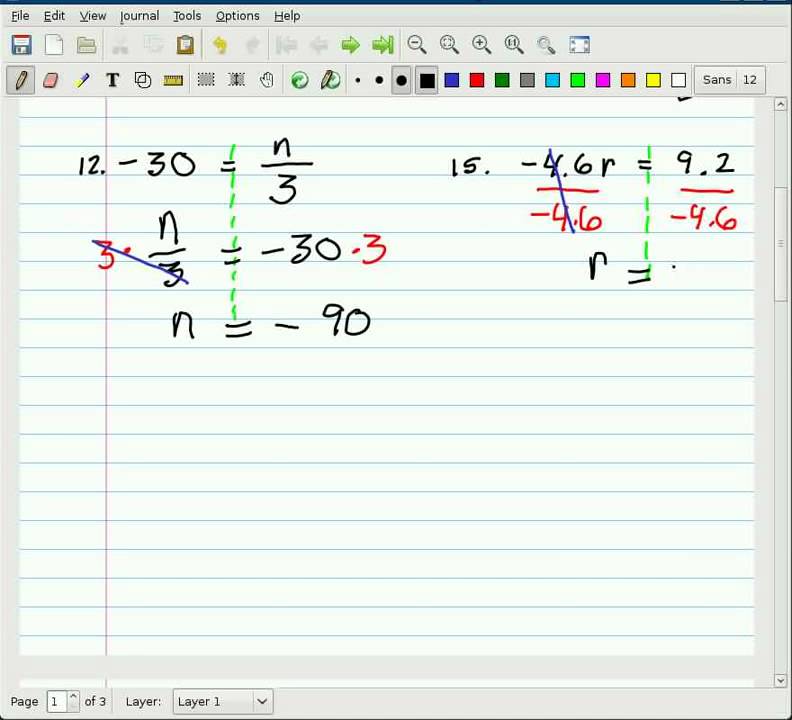 File Edit View Journal Tools Options Help
T Sans 12
12. -30 = n/3
3 · n/3 = -30 · 3
n = - 90
15. -4.6r = 9.2
-4.6 -4.6
r =
Page 1 of 3 Layer: Layer 1